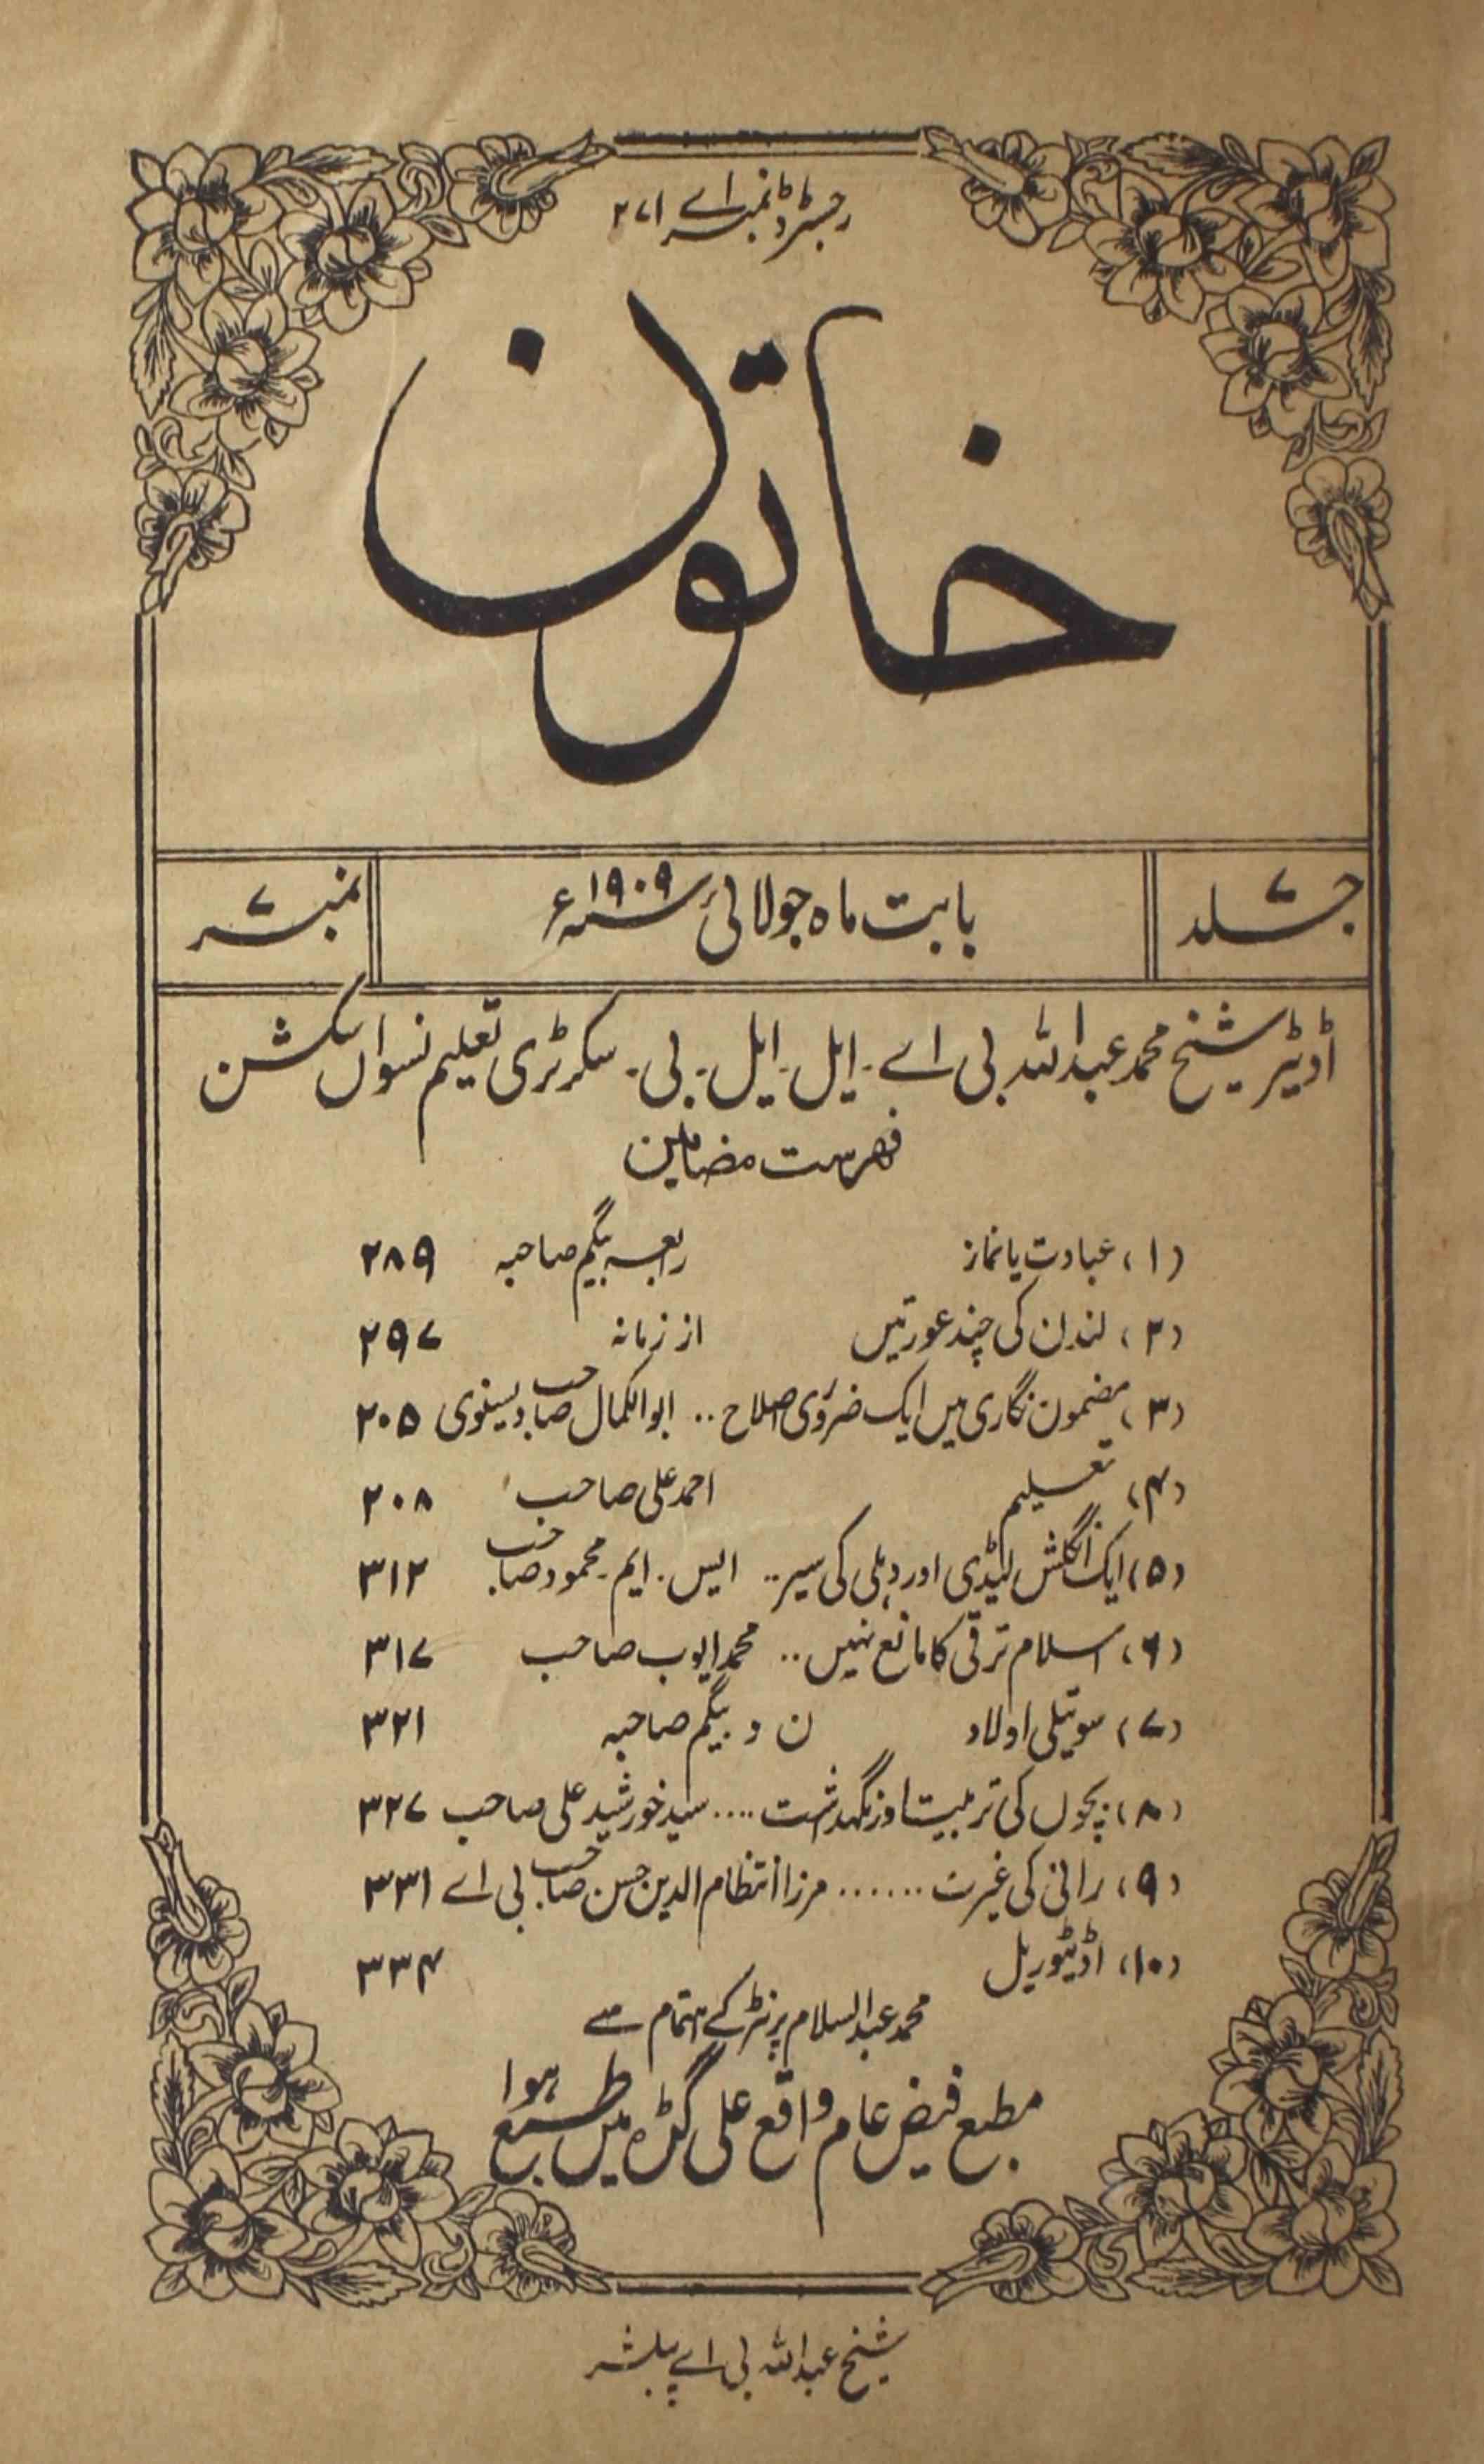 رجسٹرڈ نمبر اے ۲۷۱
خاتون
جلد ۷
بابت ماہ جولائی سنہ ۱۹۰۹ء
نمبر ۷
اڈیٹر شیخ محمد عبداللہ بی اے۔ ایل۔ ایل۔ بی۔ سکرٹری تعلیم نسواں سکشن
فہرست مضامین
(۱) عبادت یا نماز رابعہ بیگم صاحبہ ۲۸۹
(۲) لندن کی چند عورتیں از زمانہ ۲۹۷
(۳) مضمون نگاری میں ایک ضروری اصلاح .. ابوالکمال صاحب دیسنوی ۲۰۵
(۴) تعلیم احمد علی صاحب ۲۰۸
(۵) ایک انگلش لیڈی اور دہلی کی سیر .. ایس۔ ایم۔ محمود صاحب ۳۱۲
(۶) اسلام ترقی کا مانع نہیں .. محمد ایوب صاحب ۳۱۷
(۷) سوتیلی اولاد ن و بیگم صاحبہ ۳۲۱
(۸) بچوں کی تربیت اور نگہداشت .... سید خورشید علی صاحب ۳۲۷
(۹) رانی کی غیرت ...... مرزا انتظام الدین حسن صاحب بی اے ۳۳۱
(۱۰) اڈیٹوریل ۳۳۴
محمد عبدالسلام پرنٹر کے اہتمام سے
مطبع فیض عام واقع علی گڑہ میں طبع ہوا
شیخ عبداللہ بی اے پبلشر